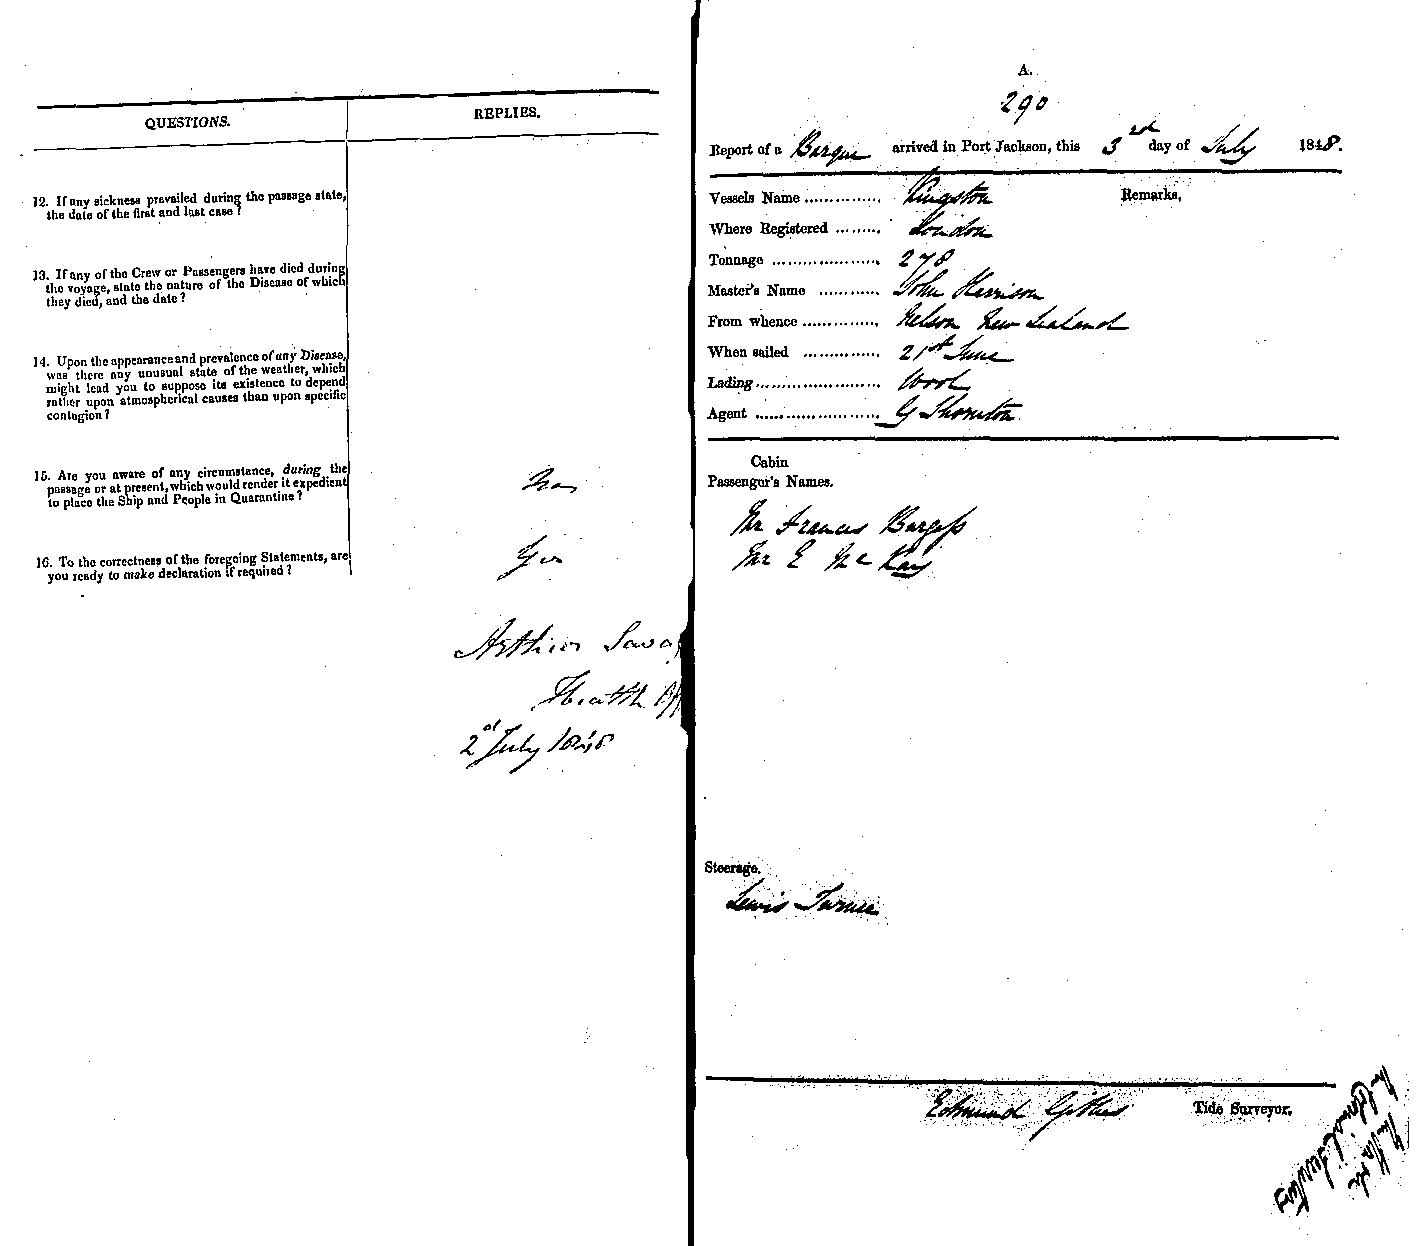 QUESTIONS.
REPLIES.
12. If any sickness prevailed during the passage state,
the date of the first and last case?
13. If any of the Crew or Passengers have died during
the voyage, state the nature of the Disease of which
they died, and the date?
14. Upon the appearance and prevalence of any Disease,
was there any unusual state of the weather, which
might lead you to suppose its existence to depend
rather upon atmospherical causes than upon specific
contagion?
15. Are you aware of any circumstance, during the
passage or at present, which would render it expedient
to place the Ship and People in Quarantine?
16. To the correctness of the foregoing Statements, are
you ready to make declaration if required?
Yes
Arthur Sava
Health Off
2d July 1848
A.
290
Report of a Barque arrived in Port Jackson, this 3rd day of July 1848.
Vessels Name .............. Kingston
Remarks,
Where Registered ........ London
Tonnage ..................... 278
Master's Name ............ John Harrison
From whence .............. Nelson New Zealand
When sailed ............... 21st June
Lading........................ Wool
Agent ........................ G Thornton
Cabin
Passenger's Names.
Mr Francis Burgess
Mr E McKay
Steerage.
Lewis Turner
Edmund Tide Surveyor.